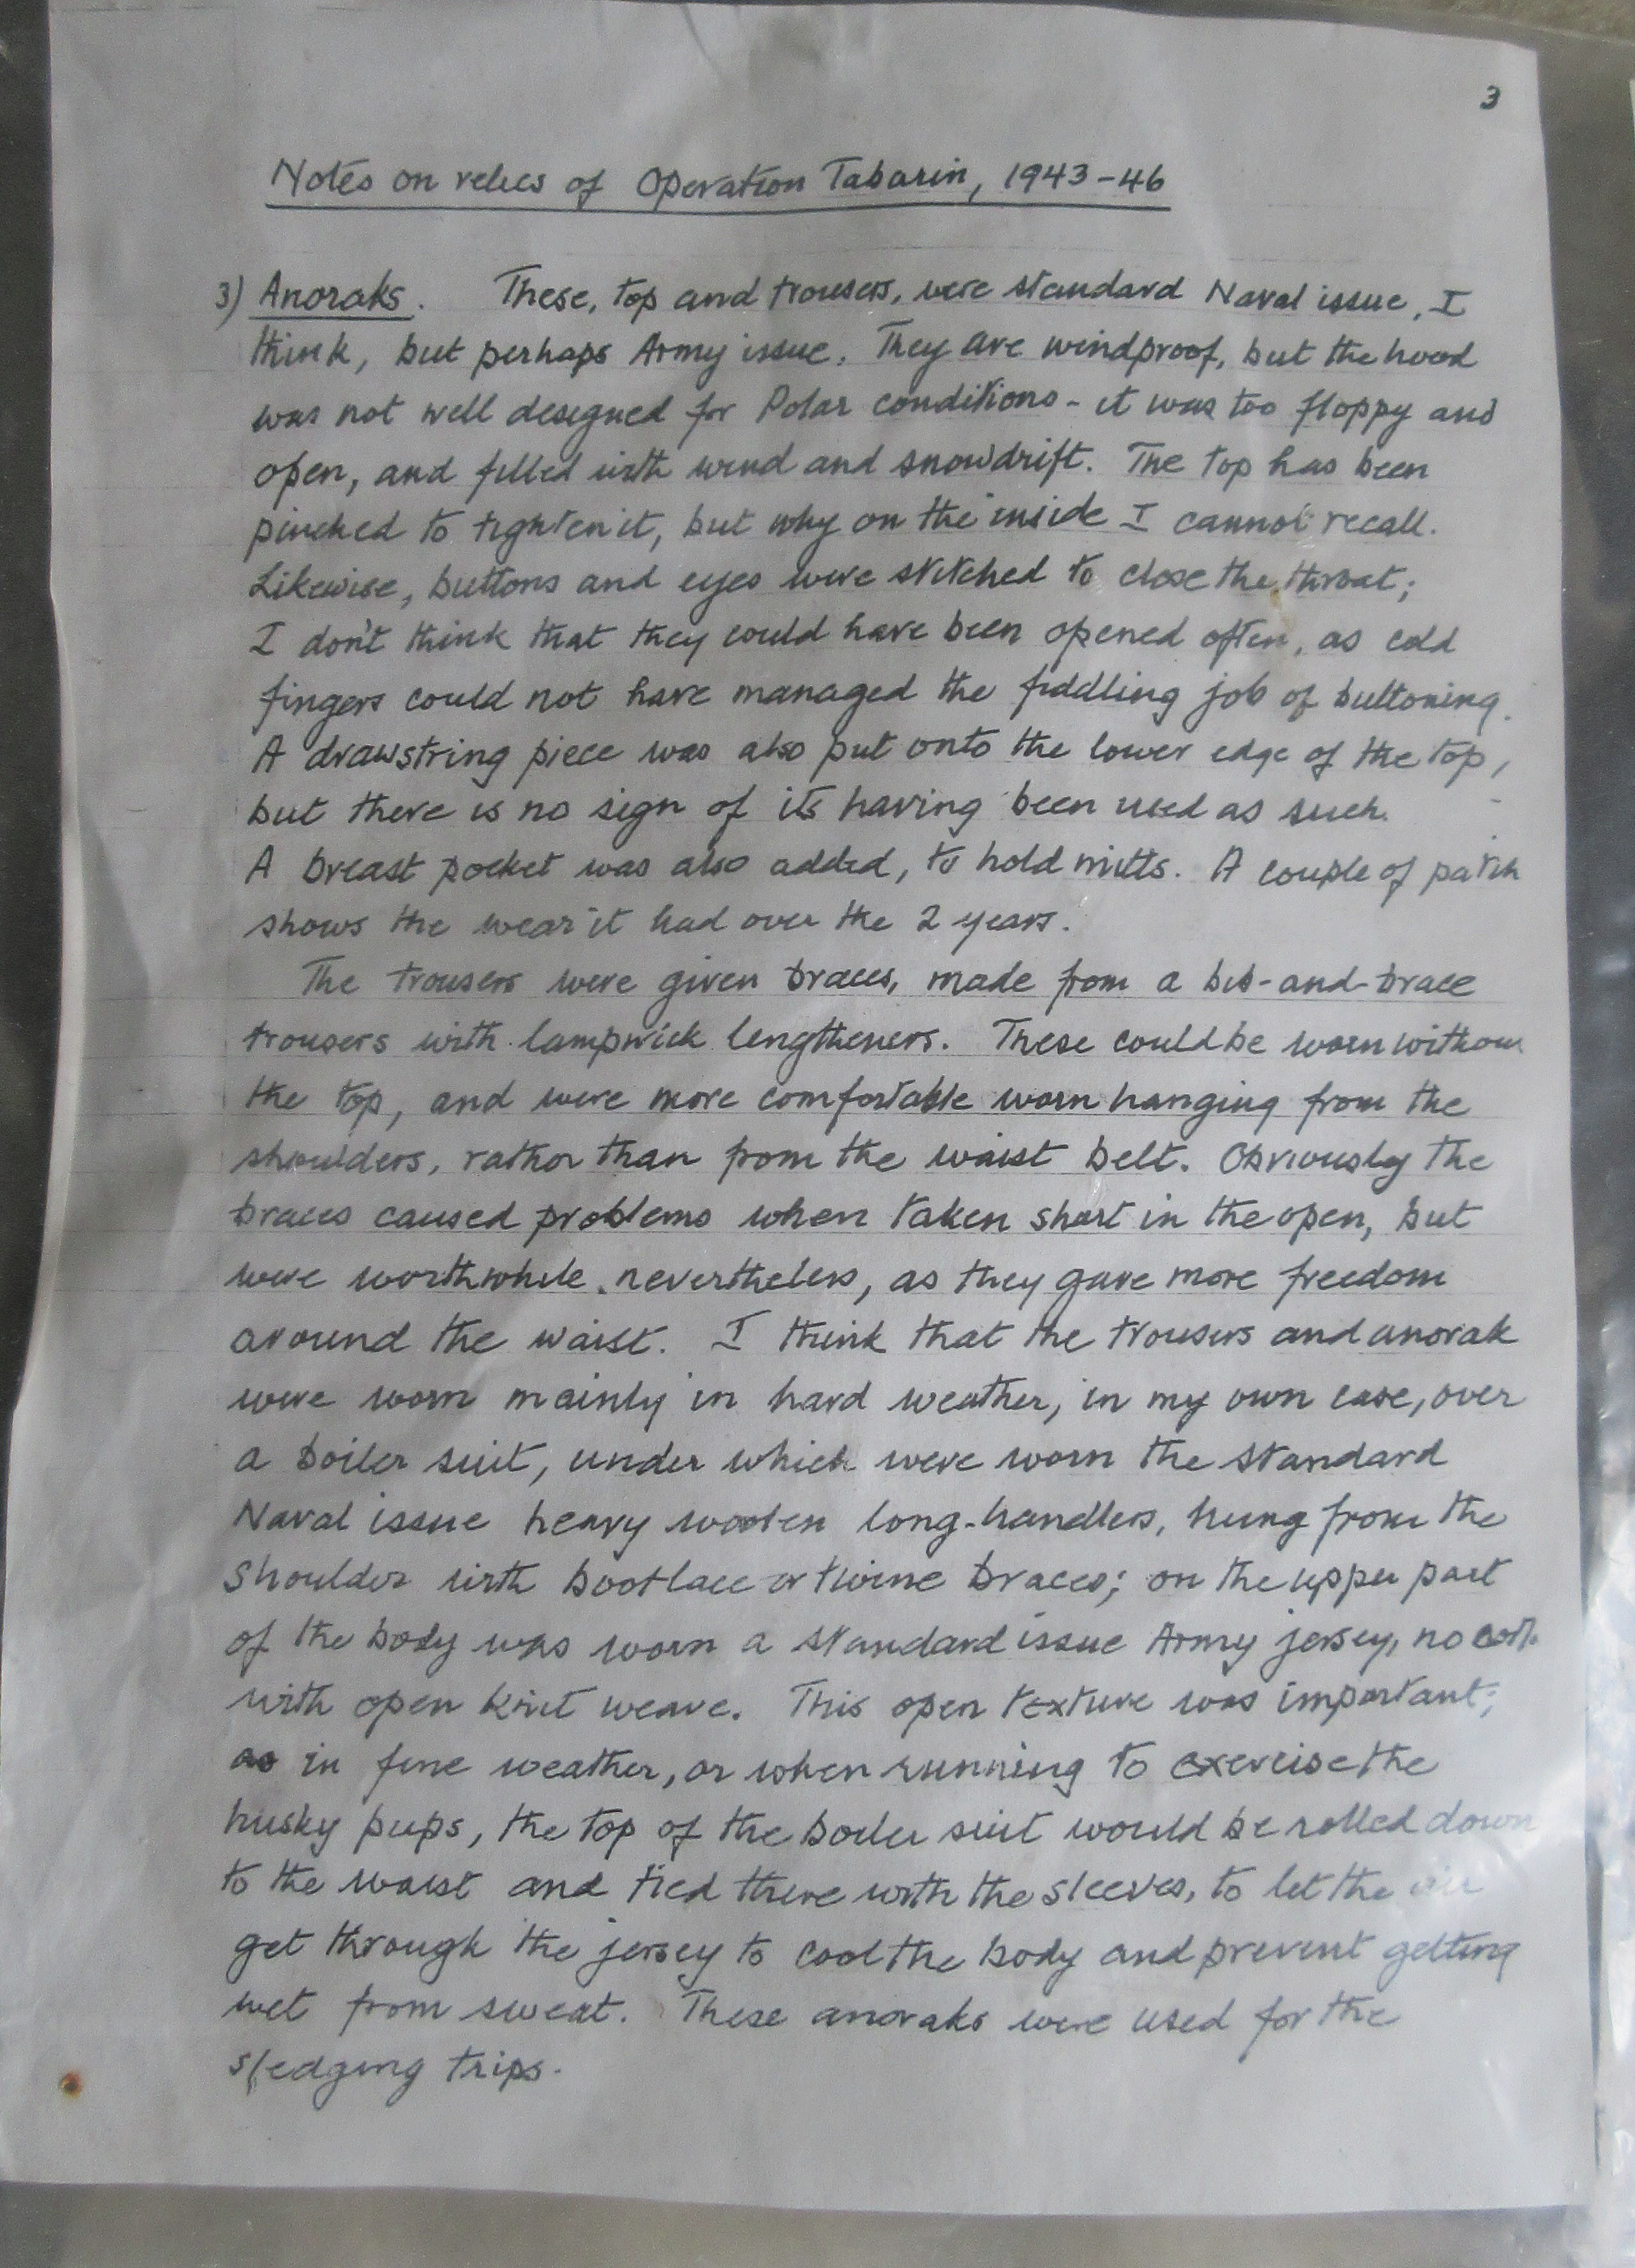 3
Notes on relics of Operation Tabarin, 1943-46
3) Anoraks. These, top and trousers, were standard Naval issue, I
think, but perhaps Army issue. They are windproof, but the hood
was not well designed for Polar conditions - it was too floppy and
open, and filled with wind and snowdrift. The top has been
pinched to tighten it, but why on the inside I cannot recall.
Likewise, buttons and eyes were stitched to close the throat;
I don't think that they could have been opened often, as cold
fingers could not have managed the fiddling job of buttoning.
A drawstring piece was also put onto the lower edge of the top,
but there is no sign of its having been used as such.
A breast pocket was also added, to hold mitts. A couple of patch
shows the wear it had over the 2 years.
The trousers were given braces, made from a bib-and-brace
trousers with lampwick lengtheners. These could be worn withou
the top, and were more comfortable worn hanging from the
shoulders, rather than from the waist belt. Obviously the
braces caused problems when taken short in the open, but
were worthwhile nevertheless, as they gave more freedom
around the waist. I think that the trousers and anorak
were worn mainly in hard weather, in my own case, over
a boiler suit, under which were worn the standard
Naval issue heavy woolen long-handlers, hung from the
shoulder with bootlace or twine braces; on the upper part
of the body was worn a standard issue Army jersey, no
with open knit weave. This open texture was important;
as in fine weather, or when running to exercise the
husky pups, the top of the boiler suit would be rolled down
to the waist and tied there with the sleeves, to let the air
get through the jersey to cool the body and prevent getting
wet from sweat. These anoraks were used for the
sledging trips.